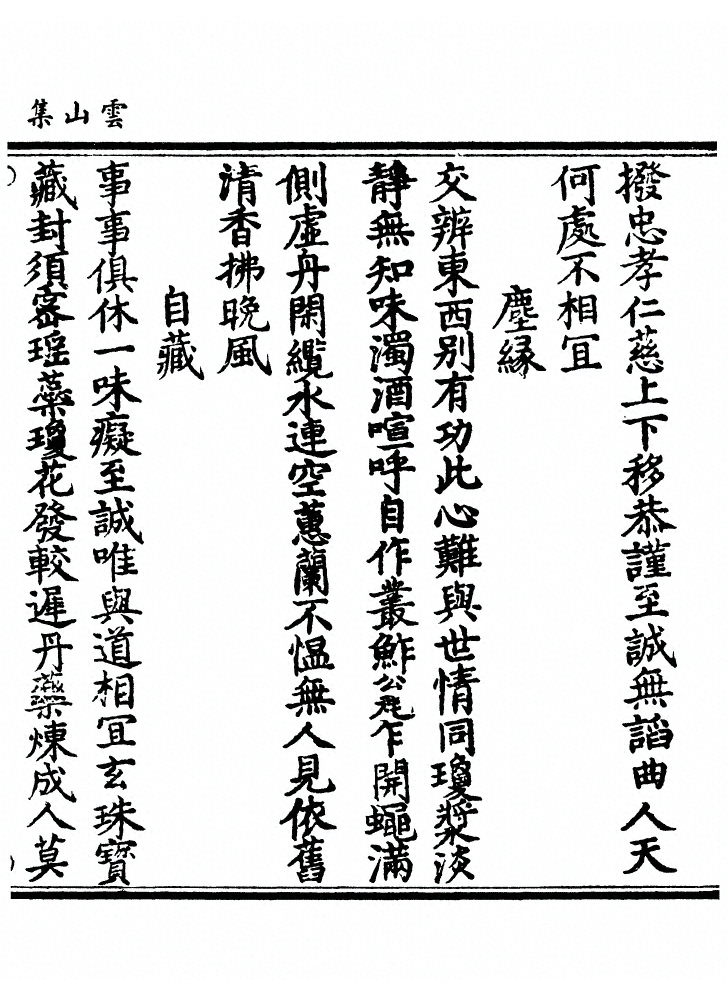 雲山集
撥忠孝仁慈上下移恭謹至誠無謟曲人天
何處不相冝
塵緣
交辨東西別有功此心難與世情同瓊漿淡
靜無知味濁酒喧呼自作叢鮓瓮乍開蠅滿
側虛舟閑纜水連空蕙蘭不慍無人見依舊
清香拂晚風
自藏
事事俱休一味癡至誠唯與道相冝玄珠寶
藏封須密瑶蘂瓊花發較遲丹藥煉成人莫